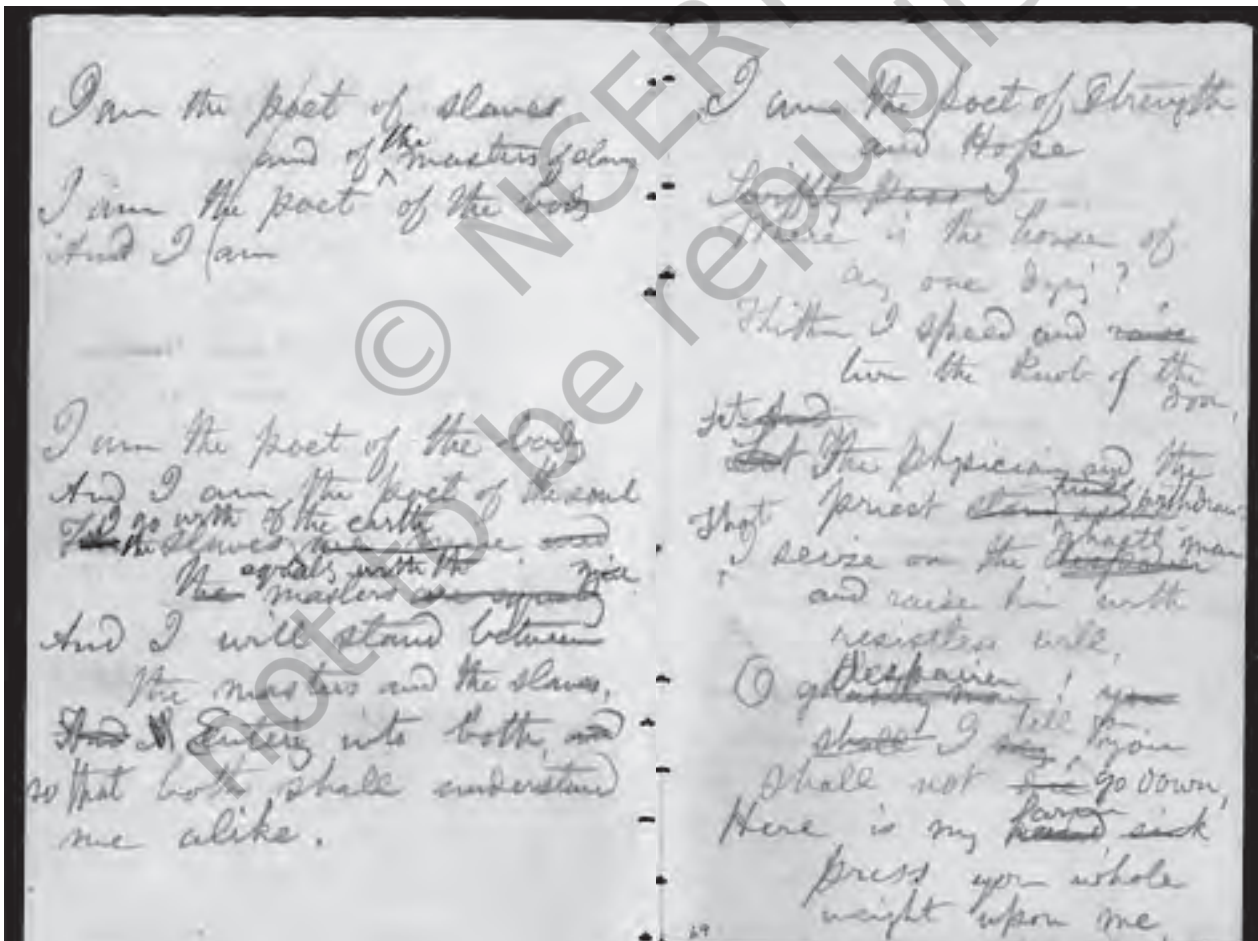 I am the poet of slaves
and of the masters of slaves
I am the poet of the body
And I am
I am the poet of the body
And I am the poet of the soul
I go with of the earth
the slaves are mine and
equals with the
The masters are equally mine
And I will stand between
the masters and the slaves,
And I Entering into both, and
so that both shall understand
me alike.
I am the poet of Strength
and Hope
Swiftly pass I
Where is the house of
any one dying?
Thither I speed and raise
turn the knob of the
door,
Let And
Let The physician and the
priest stand withdraw
That
I seize on the ghastly man
and raise him with
resistless will,
O Despairer! you
shall I tell you
shall not die go down,
Here is my hand sink
press your whole
weight upon me,
69
© NCERT
not to be republished